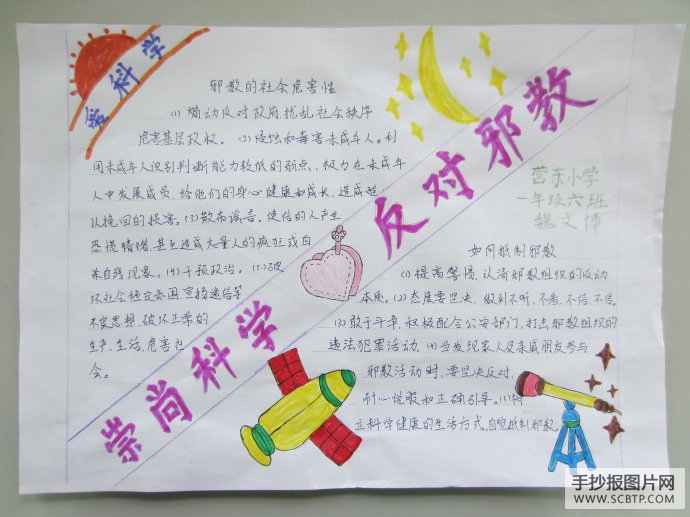 爱科学
邪教的社会危害性
(1)煽动反对政府,扰乱社会秩序
危害基层政权。(2)侵蚀和毒害未成年人。利
用未成年人识别判断能力较低的弱点,极力在未成年
人中发展成员,给他们的身心健康和成长,造成难
以挽回的损害。(3)散布谣言。使信的人产生
恐慌情绪,甚至造成大量人的疯狂式自
杀自残现象。(4)干预政治。(5)破
坏社会稳定氛围,宣扬迷信等
不良思想,破坏正常的
生产、生活,危害社
会。
崇尚科学 反对邪教
营东小学
一年级六班
魏文博
如何抵制邪教
(1)提高警惕,认清邪教组织的反动
本质。(2)态度要坚决,做到不听、不看、不信、不传。
(3)敢于斗争,积极配合公安部门,打击邪教组织的
违法犯罪活动,(4)当发现家人及亲戚朋友参与
邪教活动时,要坚决反对,
耐心说服和正确引导。(5)树
立科学健康的生活方式,自觉抵制邪教。
手抄报图片网
WWW.SCBTP.COM